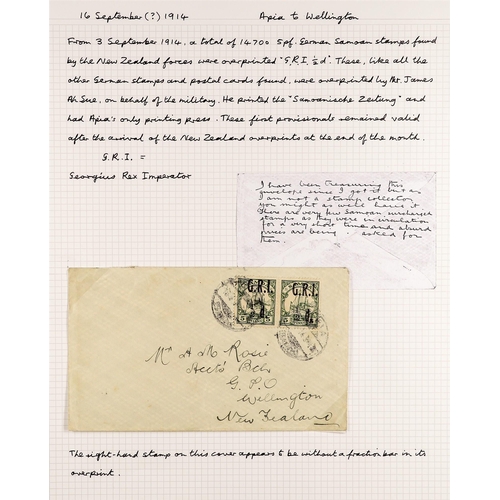 16 September (?) 1914 Apia to Wellington
From 3 September 1914, a total of 14700 5pf. German Samoan stamps found
by the New Zealand forces were overprinted "G.R.I. ½d". These, like all the
other German stamps and postal cards found, were overprinted by Mr. James
Ah Sue, on behalf of the military. He printed the "Samoanische Zeitung" and
had Apia's only printing press. These first provisionals remained valid
after the arrival of the New Zealand overprints at the end of the month.
G.R.I. =
Georgius Rex Imperator
I have been treasuring this
envelope since I got it but as
I am not a stamp collector
you might as well have it
There are very few Samoan surcharged
stamps as they were in circulation
for a very short time and absurd
prices are being asked for
them.
G.R.I. G.R.I.
d. d.
5 5 5 5
Mr A M Rosie
Acct's Bch
G.P.O
Wellington
New Zealand
The right-hand stamp on this cover appears to be without a fraction bar in its
overprint.